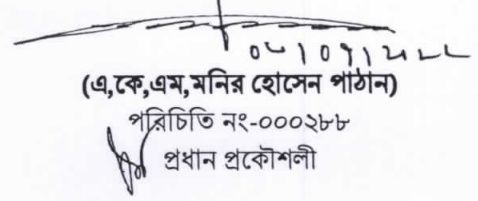 (এ,কে,এম,মনির হোসেন পাঠান)
পরিচিতি নং-০০০২৮৮
প্রধান প্রকৌশলী